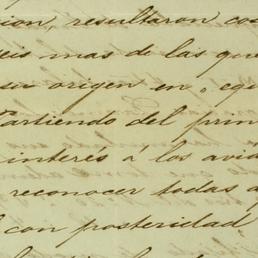 cion, resultaron co
eis mas de las que
su origen en, equ
Partiendo del prin
interés á los avia
reconocer todas
con posteridad